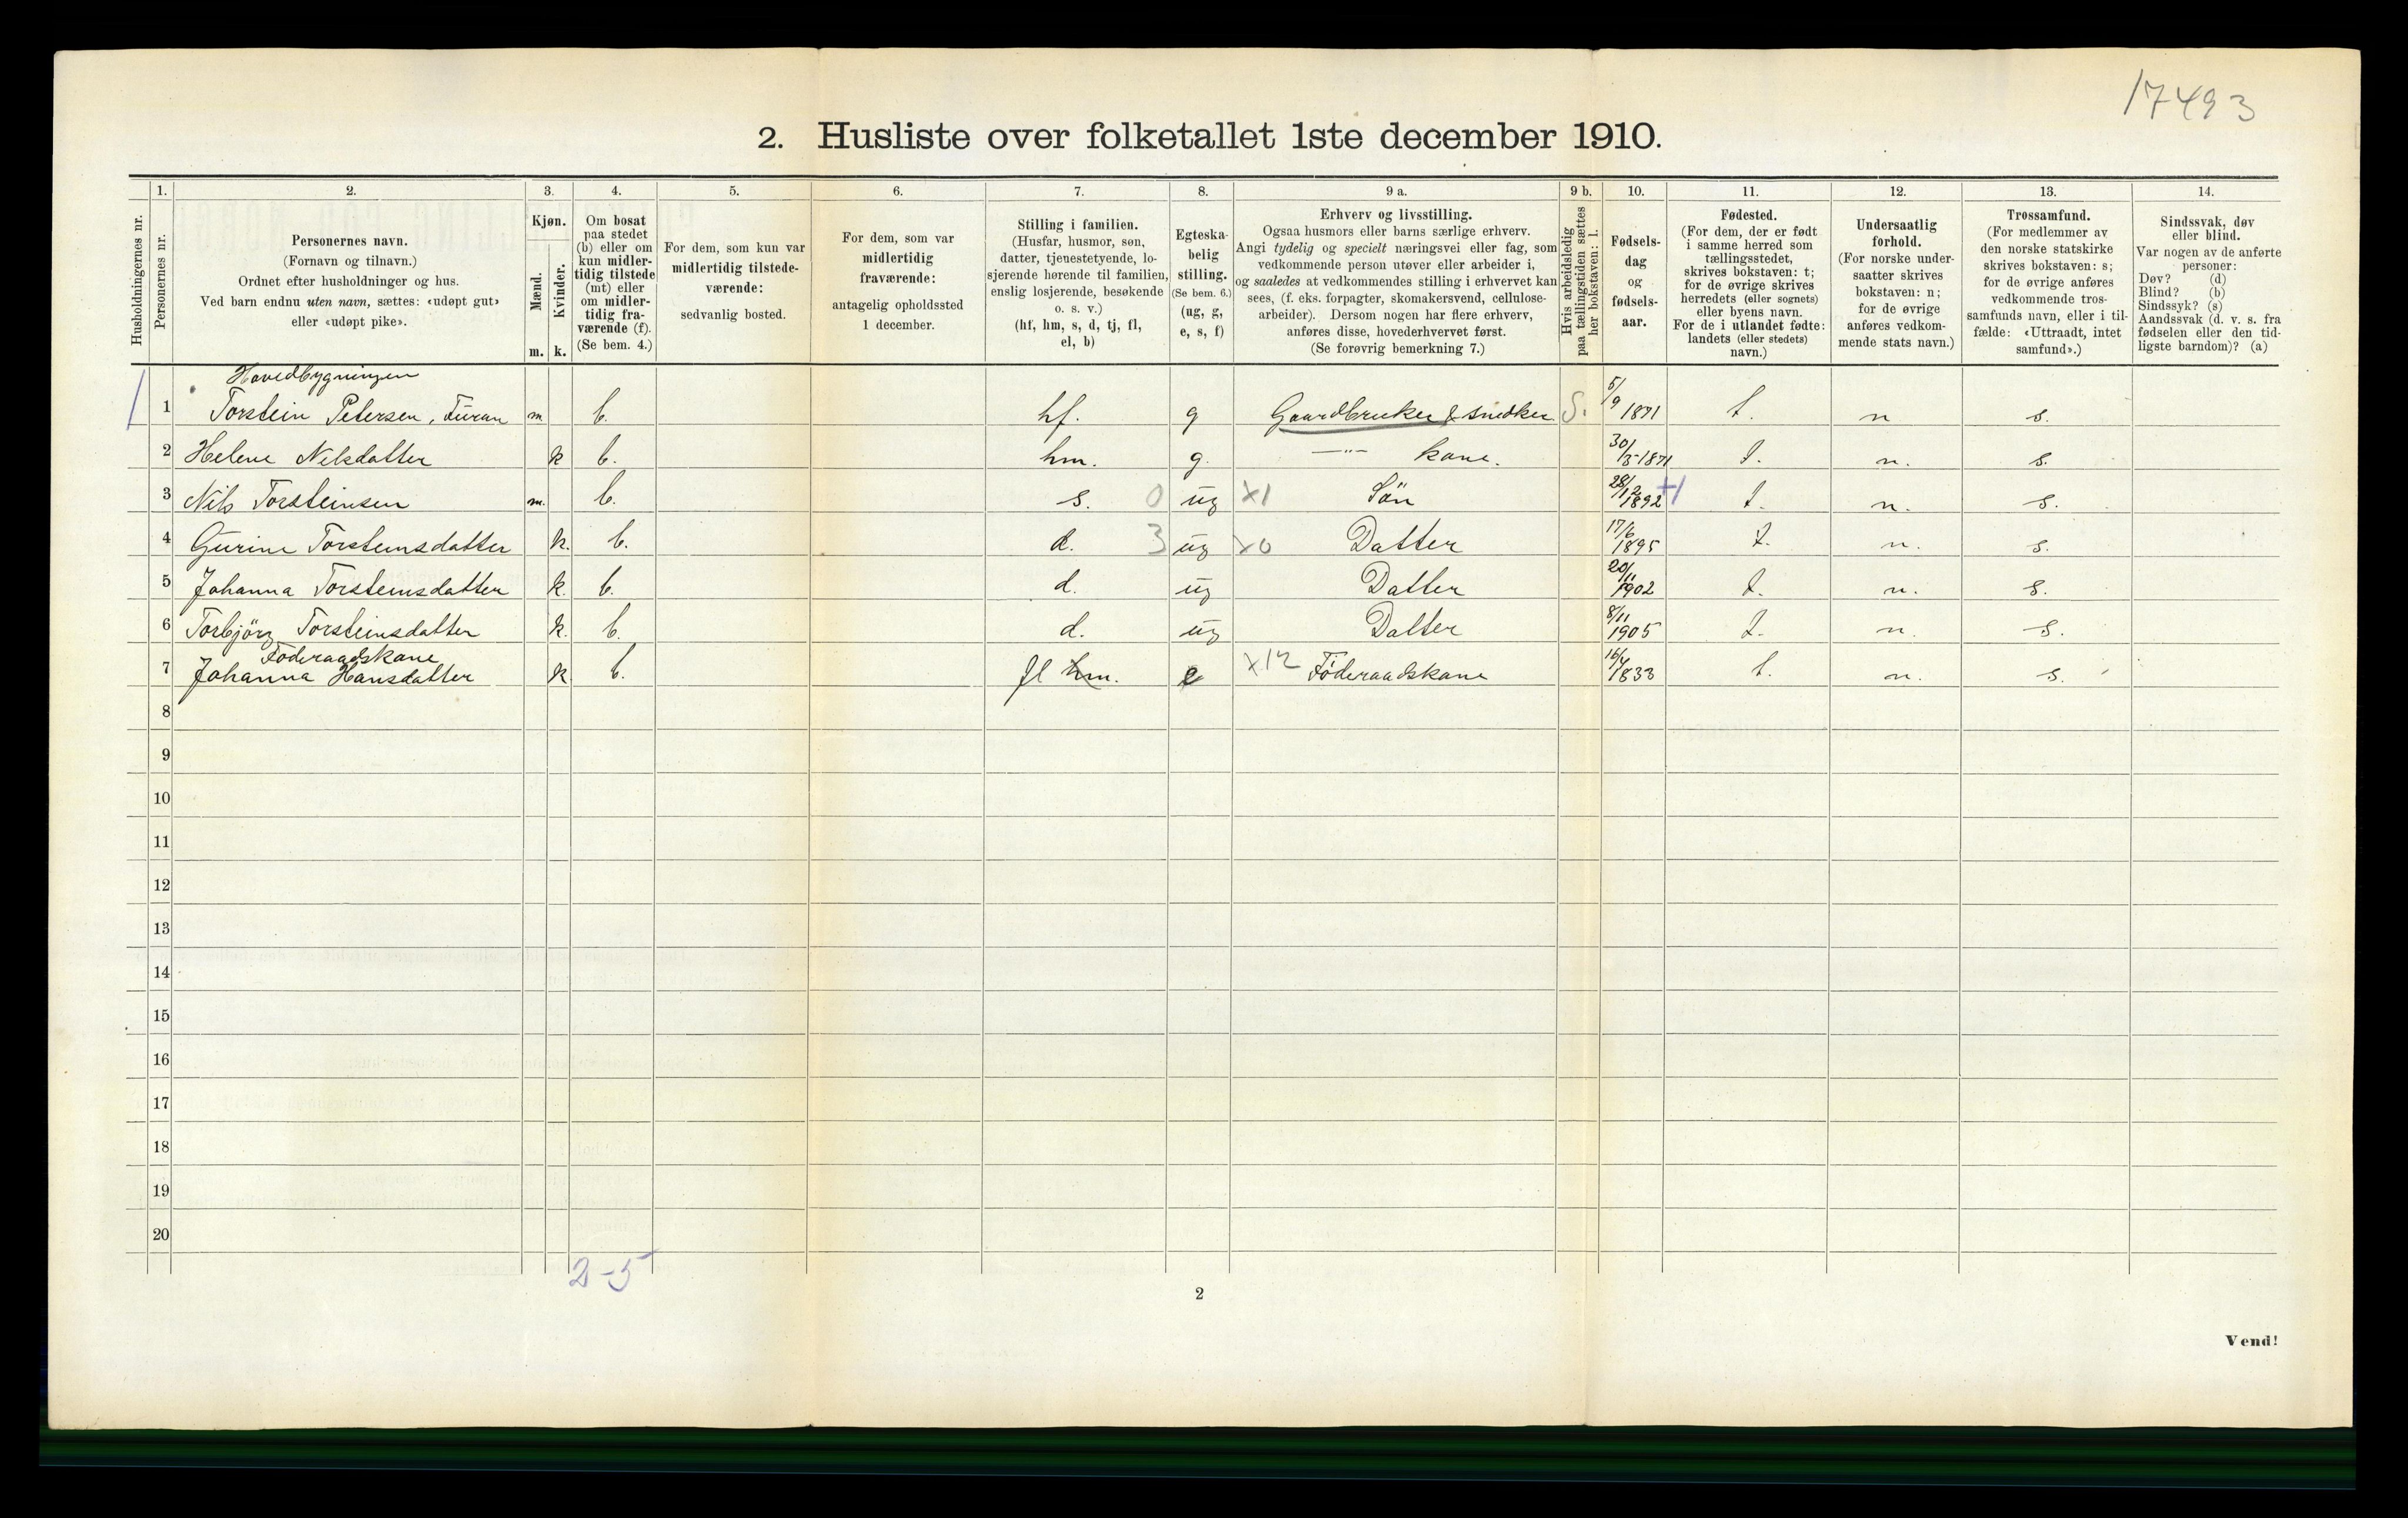 17493
2. Husliste over folketallet 1ste december 1910.
1. 2. 3. 4. 5. 6. 7. 8. 9 a. 9 b. 10. 11. 12. 13. 14.
Husholdningernes nr.
Personernes nr.
Personernes navn.
(Fornavn og tilnavn.)
Ordnet efter husholdninger og hus.
Ved barn endnu uten navn, sættes: «udøpt gut»
eller «udøpt pike».
Kjøn.
Mænd.
Kvinder.
m. k.
Om bosat
paa stedet
(b) eller om
kun midler-
tidig tilstede
(mt) eller
om midler-
tidig fra-
værende (f).
(Se bem. 4.)
For dem, som kun var
midlertidig tilstede-
værende:
sedvanlig bosted.
For dem, som var
midlertidig
fraværende:
antagelig opholdssted
1 december.
Stilling i familien.
(Husfar, husmor, søn,
datter, tjenestetyende, lo-
sjerende hørende til familien,
enslig losjerende, besøkende
o. s. v.)
(hf, hm, s, d, tj, fl,
el, b)
Egteska-
belig
stilling.
(Se bem. 6.)
(ug, g,
e, s, f)
Erhverv og livsstilling.
Ogsaa husmors eller barns særlige erhverv.
Angi tydelig og specielt næringsvei eller fag, som
vedkommende person utøver eller arbeider i,
og saaledes at vedkommendes stilling i erhvervet kan
sees, (f. eks. forpagter, skomakersvend, cellulose-
arbeider). Dersom nogen har flere erhverv,
anføres disse, hovederhvervet først.
(Se forøvrig bemerkning 7.)
Hvis arbeidsledig
paa tællingstiden sættes
her bokstaven: l.
Fødsels-
dag
og
fødsels-
aar.
Fødested.
(For dem, der er født
i samme herred som
tællingsstedet,
skrives bokstaven: t;
for de øvrige skrives
herredets (eller sognets)
eller byens navn.
For de i utlandet fødte:
landets (eller stedets)
navn.)
Undersaatlig
forhold.
(For norske under-
saatter skrives
bokstaven: n;
for de øvrige
anføres vedkom-
mende stats navn.)
Trossamfund.
(For medlemmer av
den norske statskirke
skrives bokstaven: s;
for de øvrige anføres
vedkommende tros-
samfunds navn, eller i til-
fælde: «Uttraadt, intet
samfund».)
Sindssvak, døv
eller blind.
Var nogen av de anførte
personer:
Døv? (d)
Blind? (b)
Sindssyk? (s)
Aandssvak (d. v. s. fra
fødselen eller den tid-
ligste barndom)? (a)
Hovedbygningen
1 Torstein Petersen, Furan m b. hf. g Gaardbruker & snedker S. 5/9 1871 t. n s.
2 Helene Nilsdatter k b. hm. g. —"— kone. 30/5-1871 t. n. s.
3 Nils Torsteinsen m. b. s. 0 ug x1 Søn 28/12 1892 +1 t. n. s.
4 Gurine Torsteinsdatter k. b. d. 3 ug x0 Datter 17/6 1895 t. n. s.
5 Johanna Torsteinsdatter k. b. d. ug Datter 20/11 1902 t. n. s.
6 Torbjörg Torsteinsdatter k. b. d. ug Datter 8/11 1905 t. n. s.
Föderaadskone
7 Johanna Hansdatter k b. fl hm. e x12 Föderaadskone 16/4 1833 t. n. s.
8
9
10
11
12
13
14
15
16
17
18
19
20
2-5
2
Vend!